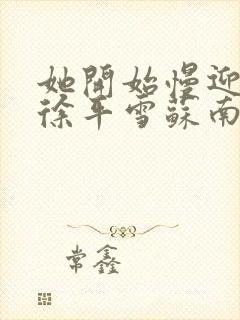 她開始慢迎
徐平雪蘇南
常鑫